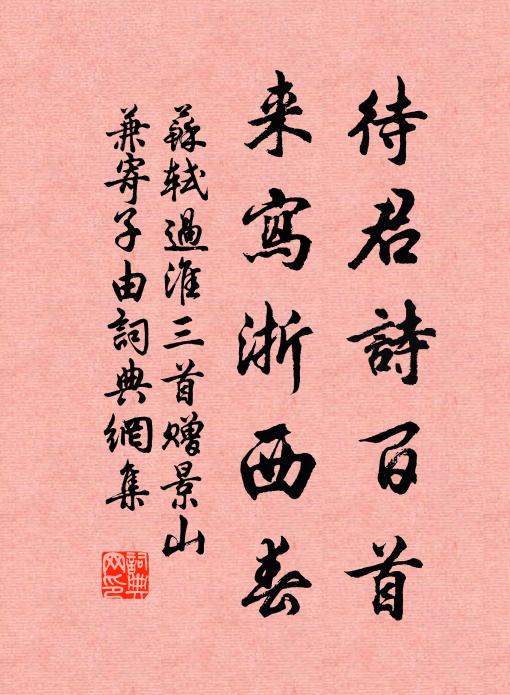 待君詩百首
来寫浙西春
蘇軾過淮三首赠景山
兼寄子由詞典網集
詞典
网印